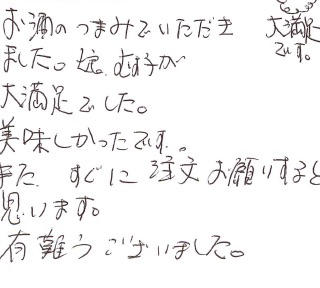 お酒のつまみでいただき
ました。娘、むす子が
大満足でした。
美味しかったです。
また、すぐに注文お願いすると
思います。
有難うございました。
大満足
です。